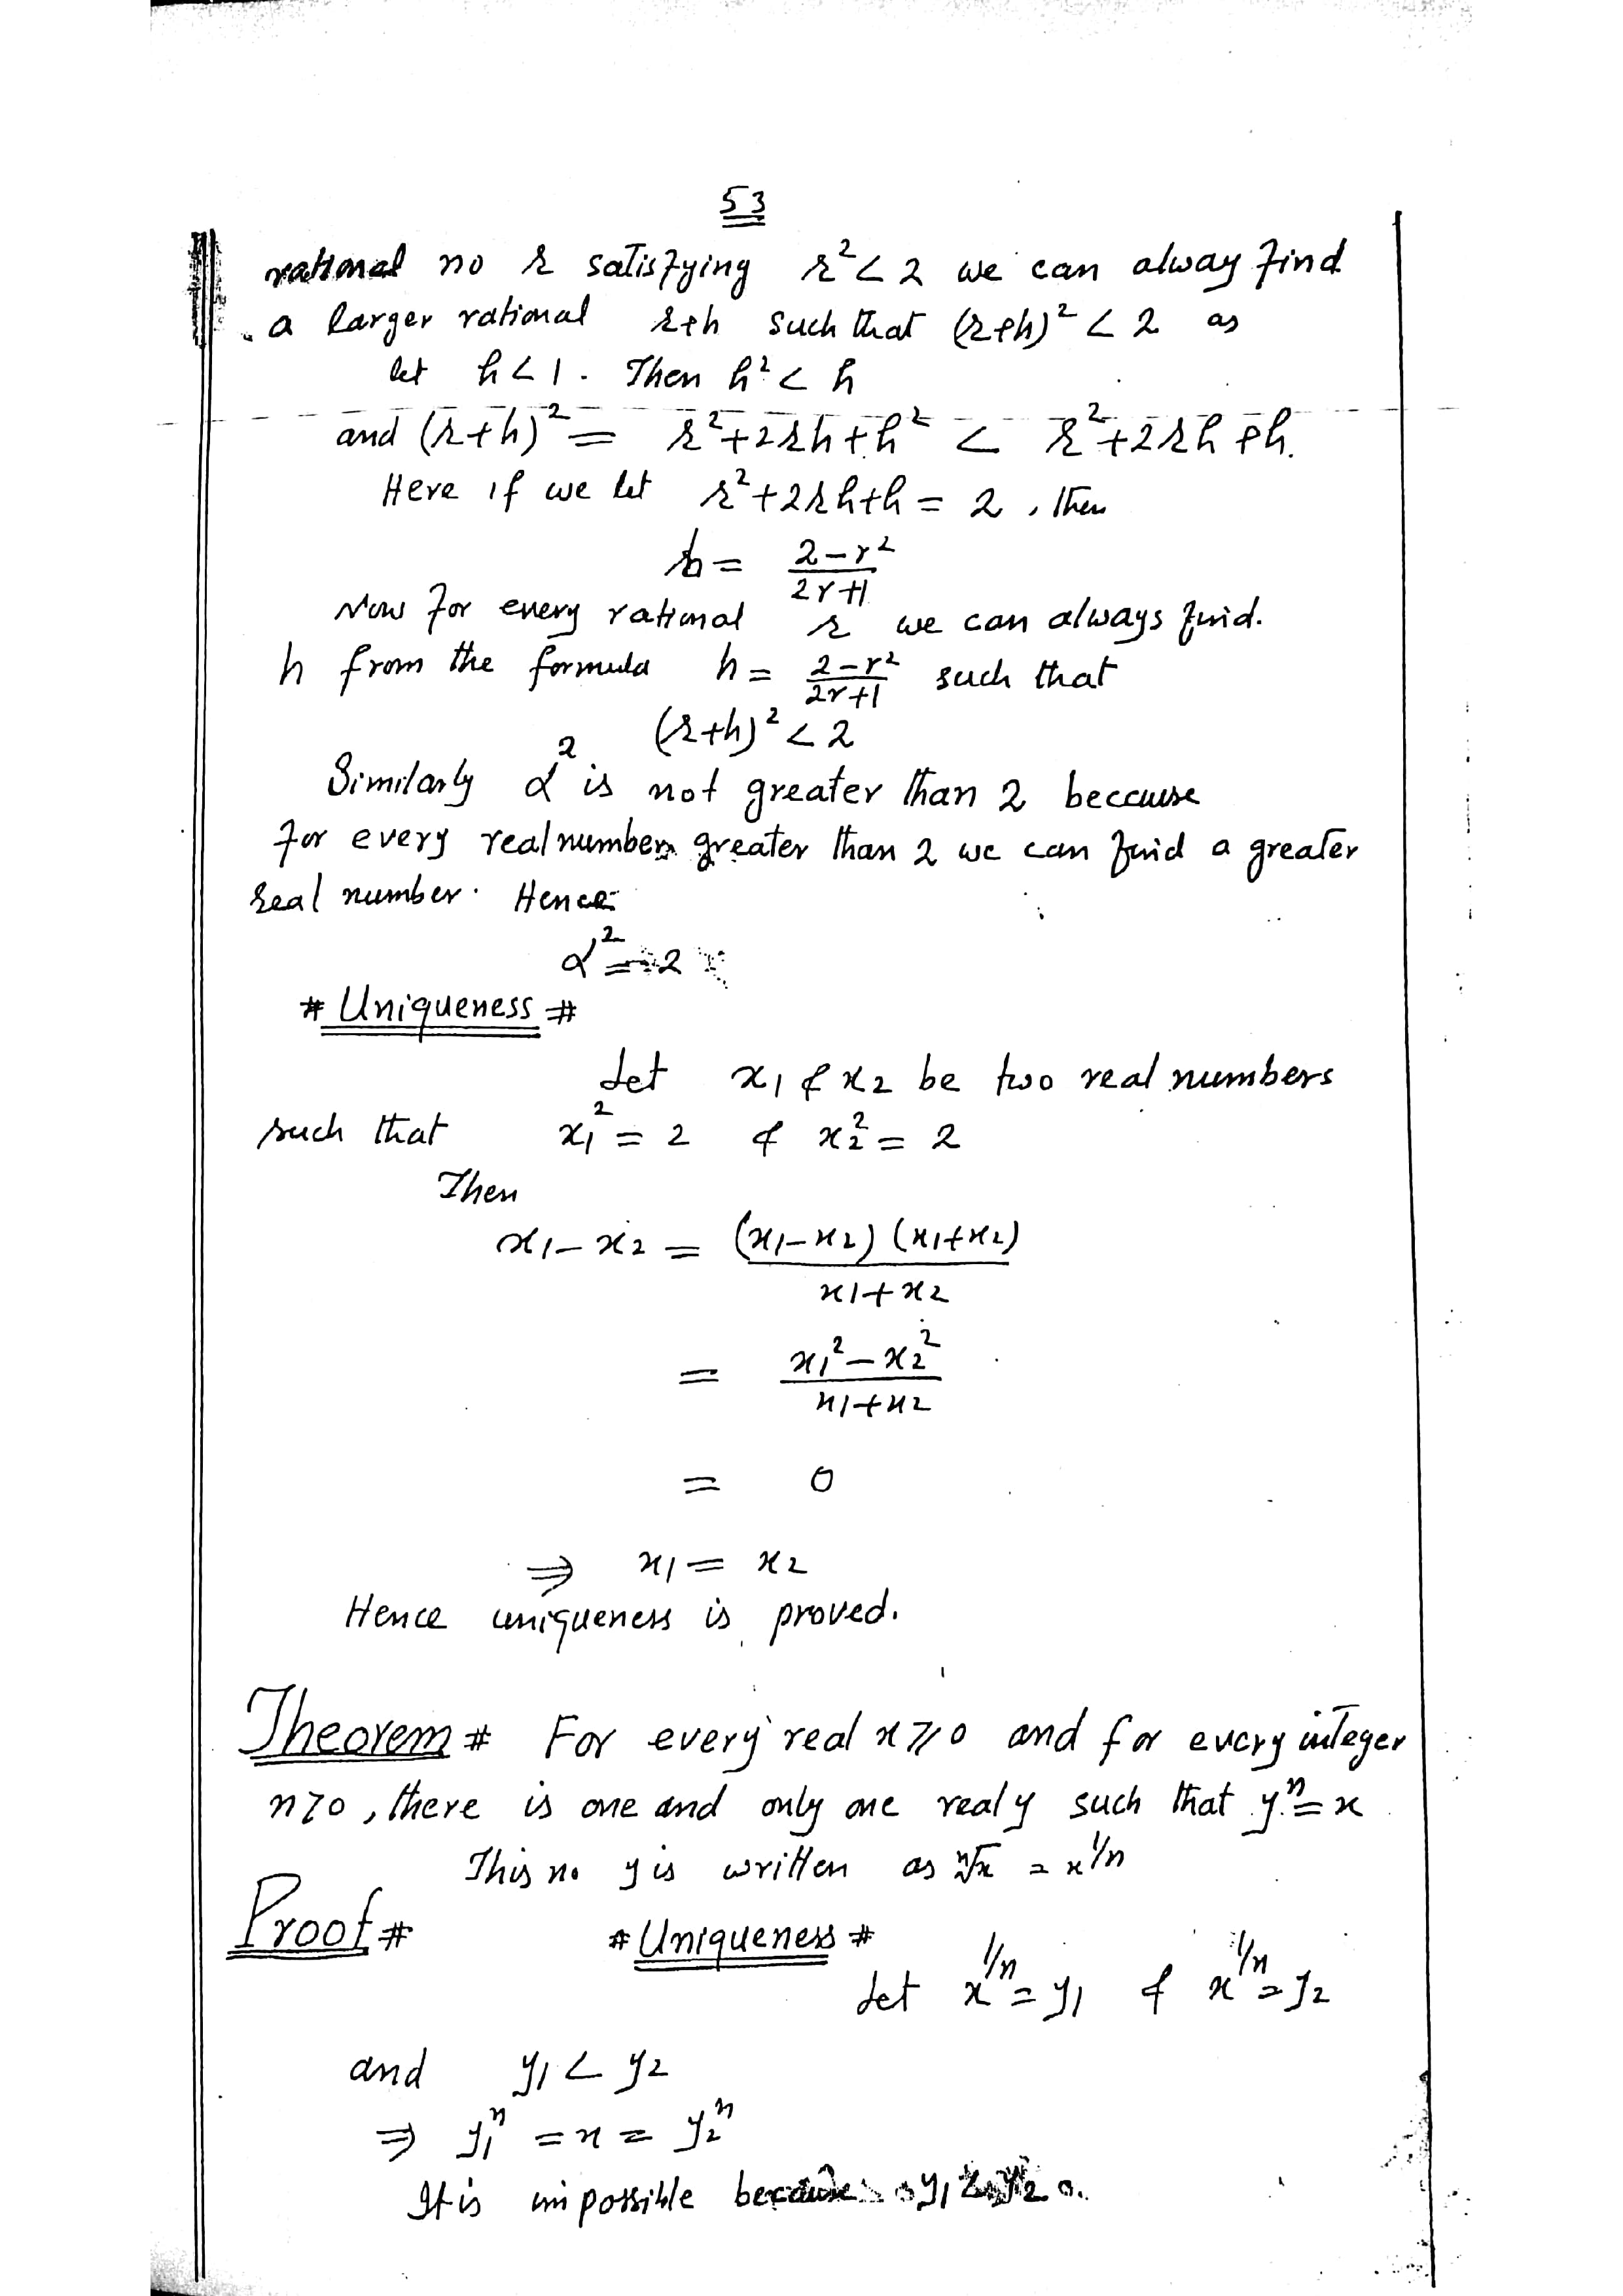 53
rational no r satisfying r² < 2 we can alway find
a larger rational r+h such that (r+h)² < 2 as
let h < 1. Then h² < h
and (r+h)² = r²+2rh+h² < r²+2rh+h.
Here if we let r²+2rh+h = 2, then
h = (2-r²)/(2r+1)
Now for every rational r we can always find.
h from the formula h = (2-r²)/(2r+1) such that
(r+h)² < 2
Similarly α² is not greater than 2 because
for every real numbers greater than 2 we can find a greater
real number. Hence
α² = 2
# Uniqueness #
Let x₁ & x₂ be two real numbers
such that x₁² = 2 & x₂² = 2
Then
x₁ - x₂ = (x₁-x₂)(x₁+x₂)/(x₁+x₂)
= (x₁² - x₂²)/(x₁+x₂)
= 0
⇒ x₁ = x₂
Hence uniqueness is proved.
Theorem # For every real x ⩾ 0 and for every integer
n>0, there is one and only one real y such that yⁿ = x
This no y is written as ⁿ√x = x^{1/n}
Proof #
# Uniqueness #
Let x^{1/n} = y₁ & x^{1/n} = y₂
and y₁ < y₂
⇒ y₁ⁿ = x = y₂ⁿ
It is impossible because y₁ < y₂